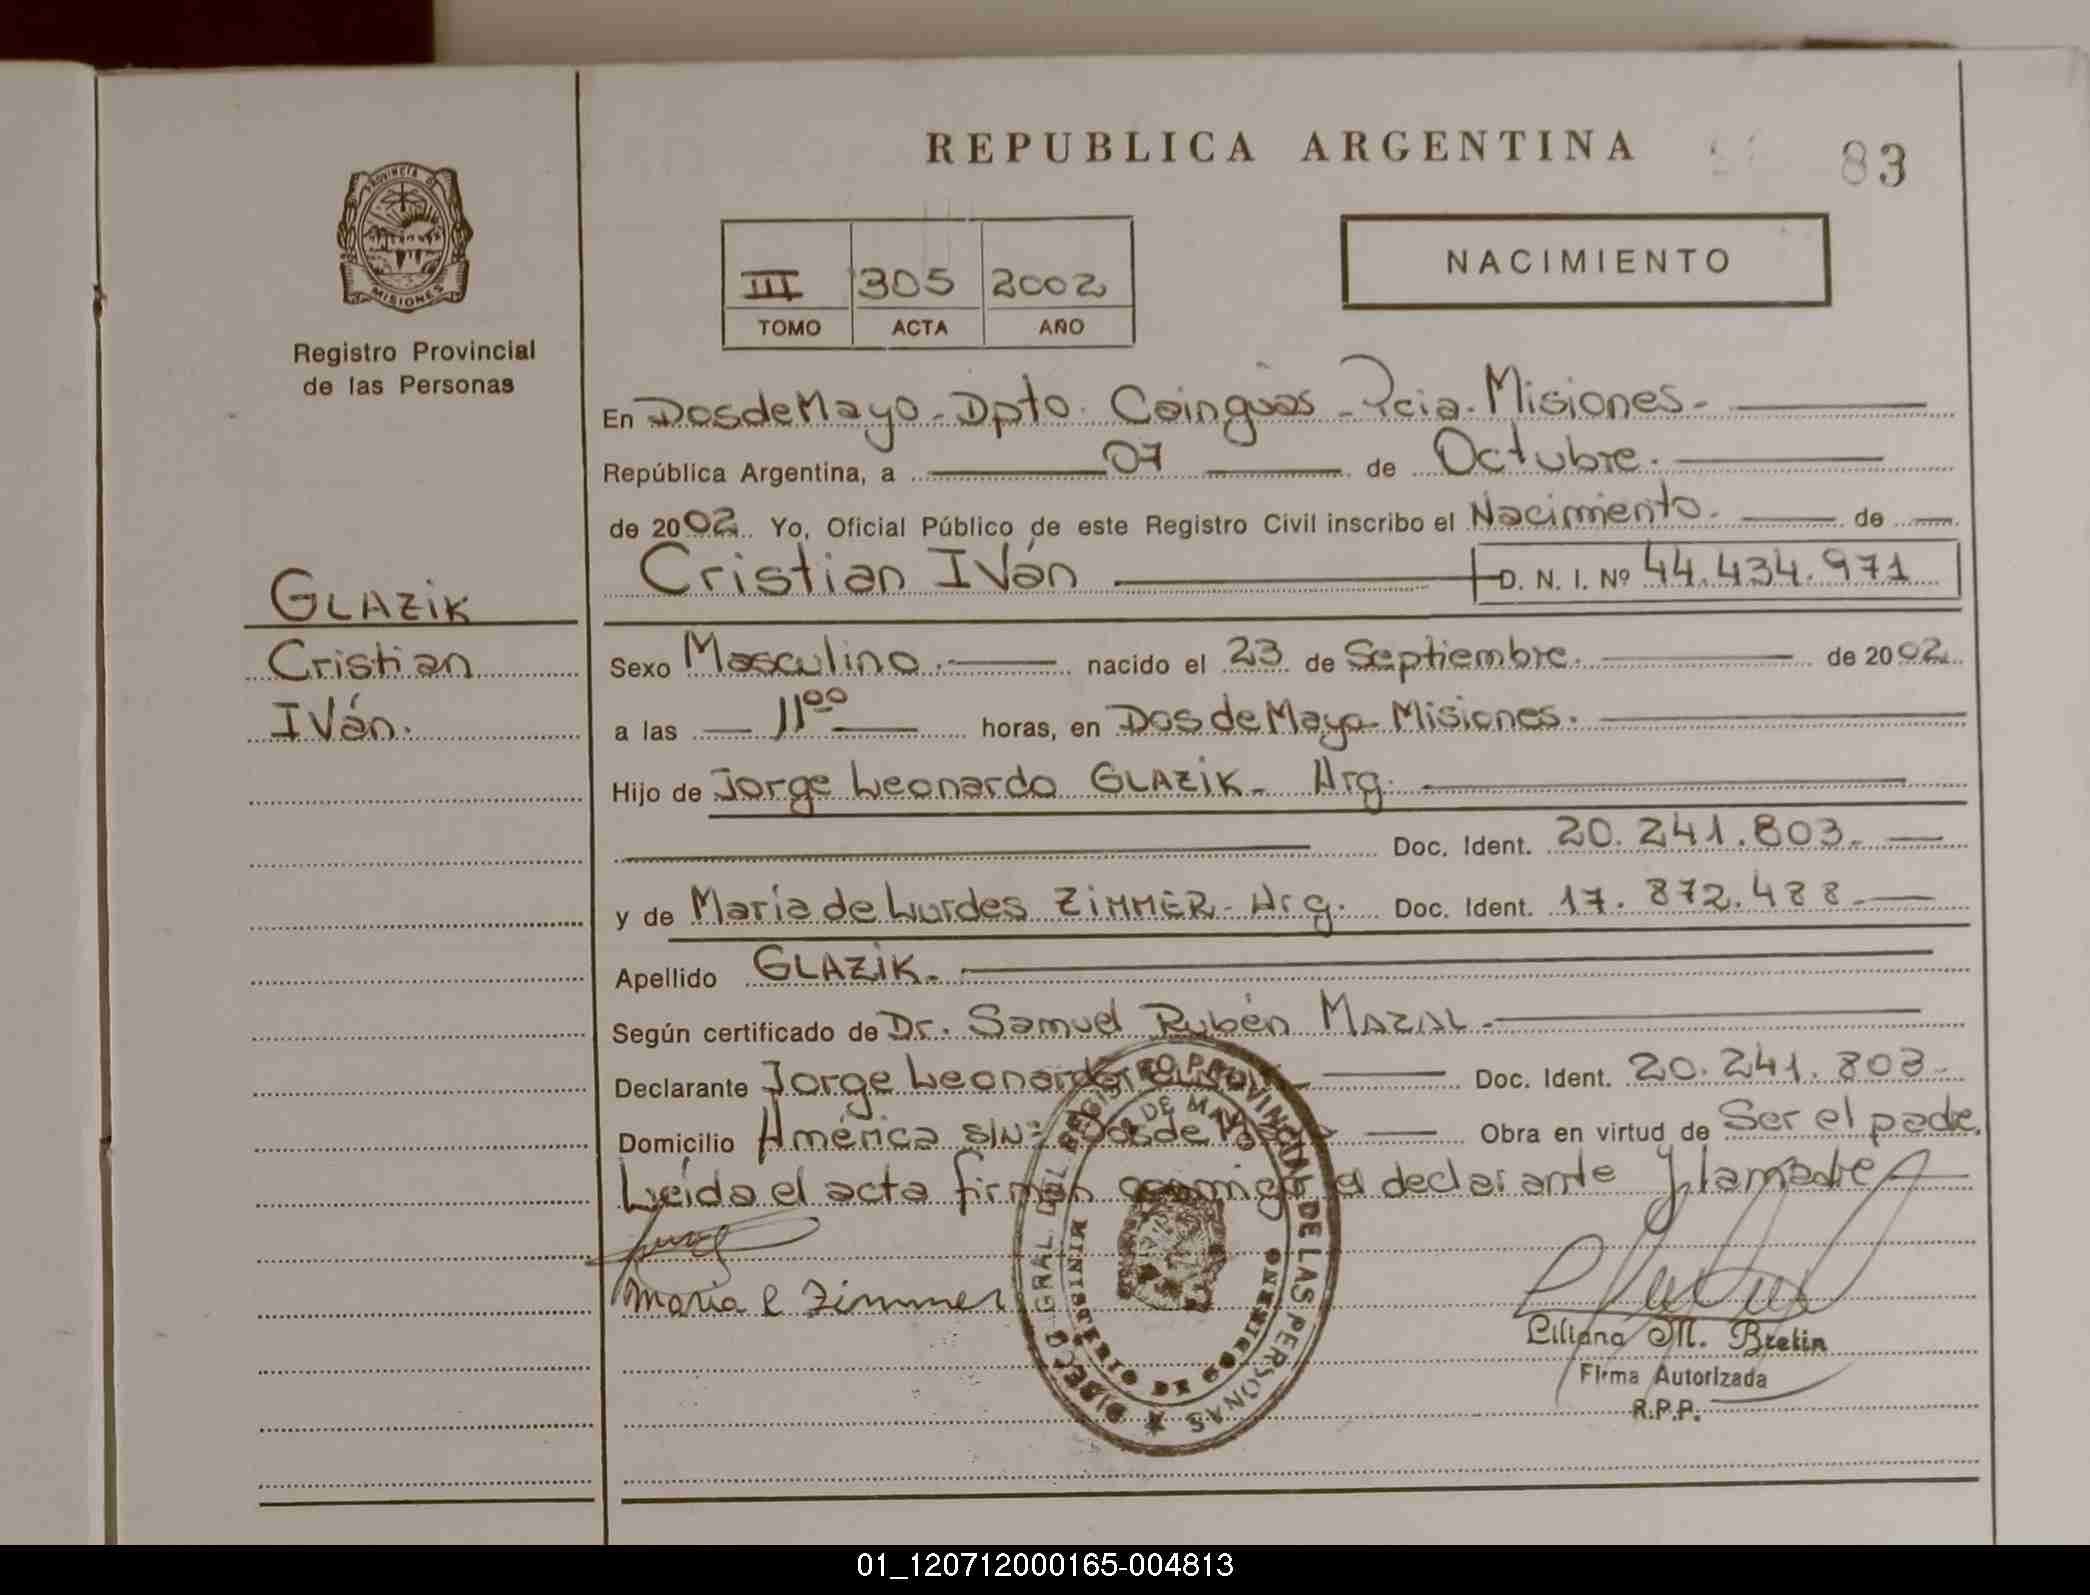 REPUBLICA ARGENTINA
83
PROVINCIA DE
MISIONES
Registro Provincial
de las Personas
III 305 2002
TOMO ACTA AÑO
NACIMIENTO
En Dos de Mayo - Dpto. Cainguás - Pcia. Misiones.
República Argentina, a 07 de Octubre.
de 2002. Yo, Oficial Público de este Registro Civil inscribo el Nacimiento. de
Cristian Iván D. N. I. Nº 44.434.971
GLAZIK
Cristian
Iván.
Sexo Masculino. nacido el 23 de Septiembre. de 2002
a las 11 00 horas, en Dos de Mayo - Misiones.
Hijo de Jorge Leonardo GLAZIK - Arg.
Doc. Ident. 20.241.803.
y de María de Lurdes ZIMMER - Arg. Doc. Ident. 17.872.488.
Apellido GLAZIK.
Según certificado de Dr. Samuel Rubén MAZAL.
Declarante Jorge Leonardo Doc. Ident. 20.241.803.
Domicilio América S/Nº Dos de Mayo Obra en virtud de Ser el padre.
Leída el acta firman conmigo el declarante y la madre
Maria L Zimmer
DIRECC. GRAL. DEL REGISTRO PROVINCIAL DE LAS PERSONAS
2 DE MAYO
MINISTERIO DE GOBIERNO
Liliana M. Bretin
Firma Autorizada
R.P.P.
01_120712000165-004813